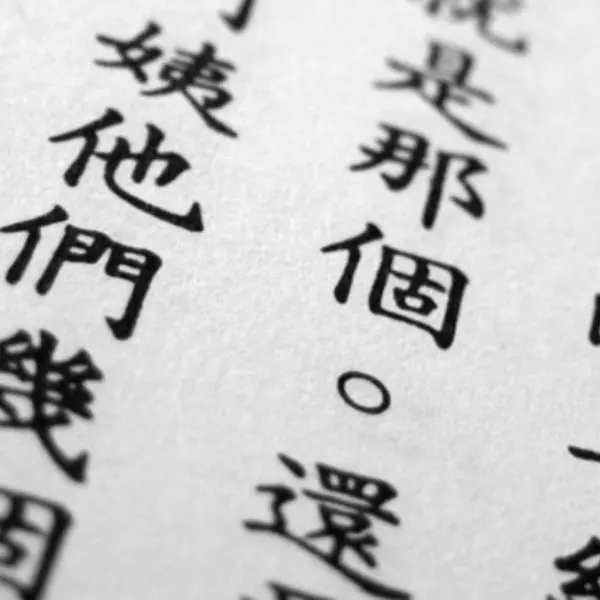 就是那個。還
姨他們幾個